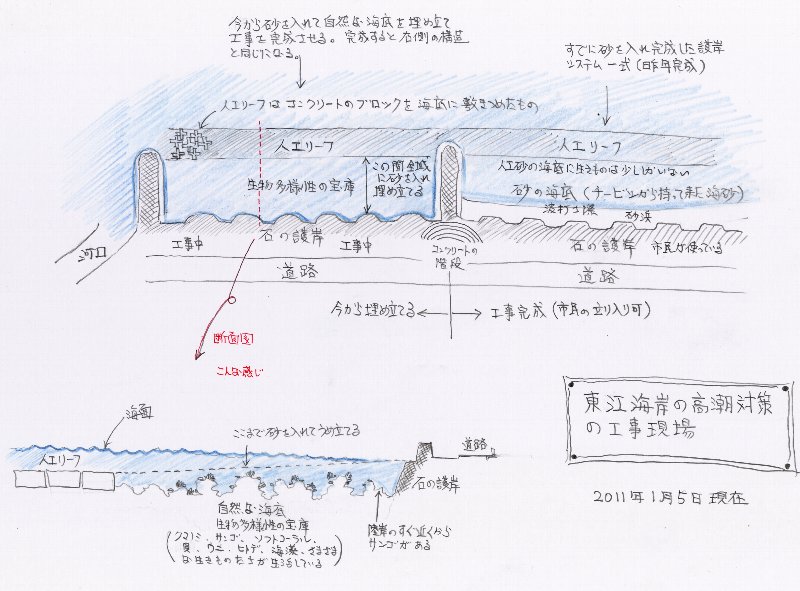 今から砂を入れて自然な海底を埋め立て
工事を完成させる。完成すると右側の構造
と同じになる。
すでに砂を入れ完成した護岸
システム一式(昨年完成)
人工リーフはコンクリートのブロックを海底に敷きつめたもの
人工リーフ
人工リーフ
この間全域
に砂を入れ
埋め立てる
生物多様性の宝庫
人工砂の海底に生きものは少ししかいない
砂の海底(チービシから持って来た海砂)
波打ち際
砂浜
河口
工事中
石の護岸
工事中
コンクリートの
階段
石の護岸
市民が使っている
道路
道路
今から埋め立てる
工事完成(市民の立り入り可)
断面図
こんな感じ
東江海岸の高潮対策
の工事現場
2011年1月5日現在
海面
ここまで砂を入れてうめ立てる
道路
人工リーフ
石の護岸
自然な海底
生物多様性の宝庫
(クマノミ、サンゴ、ソフトコーラル、
貝、ウニ、ヒトデ、海藻、さまざま
な生きものたちが生活している)
陸岸のすぐ近くから
サンゴがある